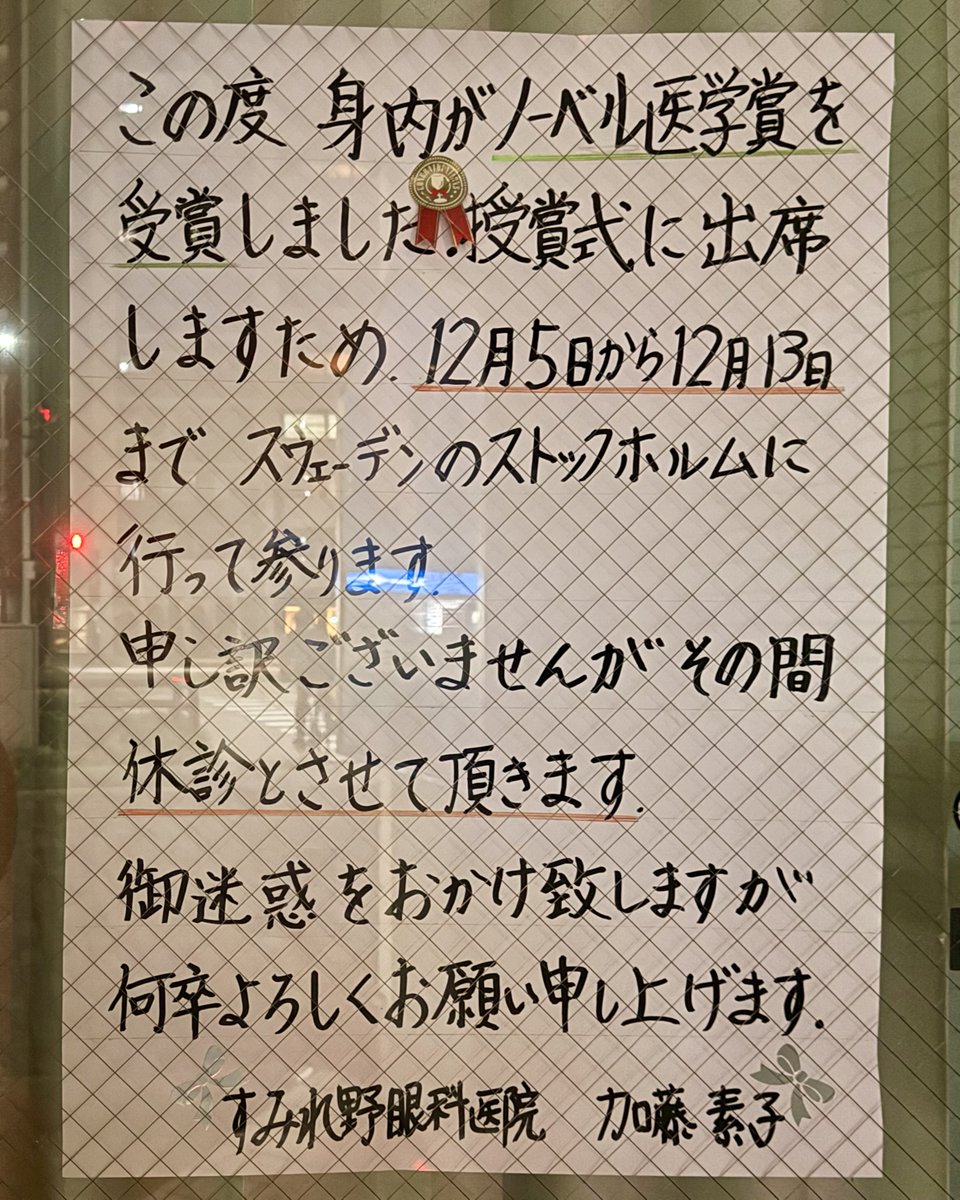 この度 身内がノーベル医学賞を
受賞しました.授賞式に出席
しますため.12月5日から12月13日
まで スウェーデンのストックホルムに
行って参ります.
申し訳ございませんがその間
休診とさせて頂きます.
御迷惑をおかけ致しますが
何卒よろしくお願い申し上げます.
すみれ野眼科医院 加藤素子